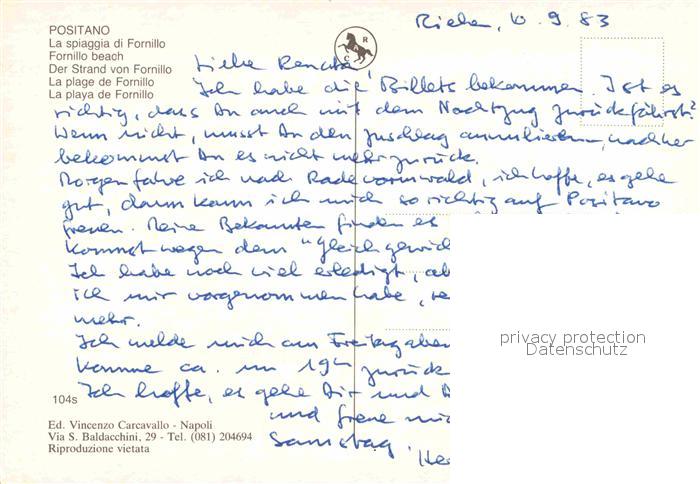 POSITANO
La spiaggia di Fornillo
Fornillo beach
Der Strand von Fornillo
La plage de Fornillo
La playa de Fornillo
Riehen, 10. 9. 83
Liebe Renata,
Ich habe die Billets bekommen. Ist es
richtig, dass Du auch mit dem Nachtzug zurückfährst?
Wenn nicht, musst Du den Zuschlag annullieren, nachher
bekommst Du es nicht mehr zurück.
Morgen fahre ich nach Radevormwald, ich hoffe, es gehe
gut, dann kann ich mich so richtig auf Positano
freuen. Meine Bekannten finden es
kommst wegen dem "Gleichgewich
Ich habe noch viel erledigt, ab
ich mir vorgenommen habe,
mehr.
Ich melde mich am Freitagaben
komme ca. um 19 zurück
Ich hoffe, es gehe Dir und
und freue mic
Samstag.
He
104s
Ed. Vincenzo Carcavallo - Napoli
Via S. Baldacchini, 29 - Tel. (081) 204694
Riproduzione vietata
privacy protection
Datenschutz